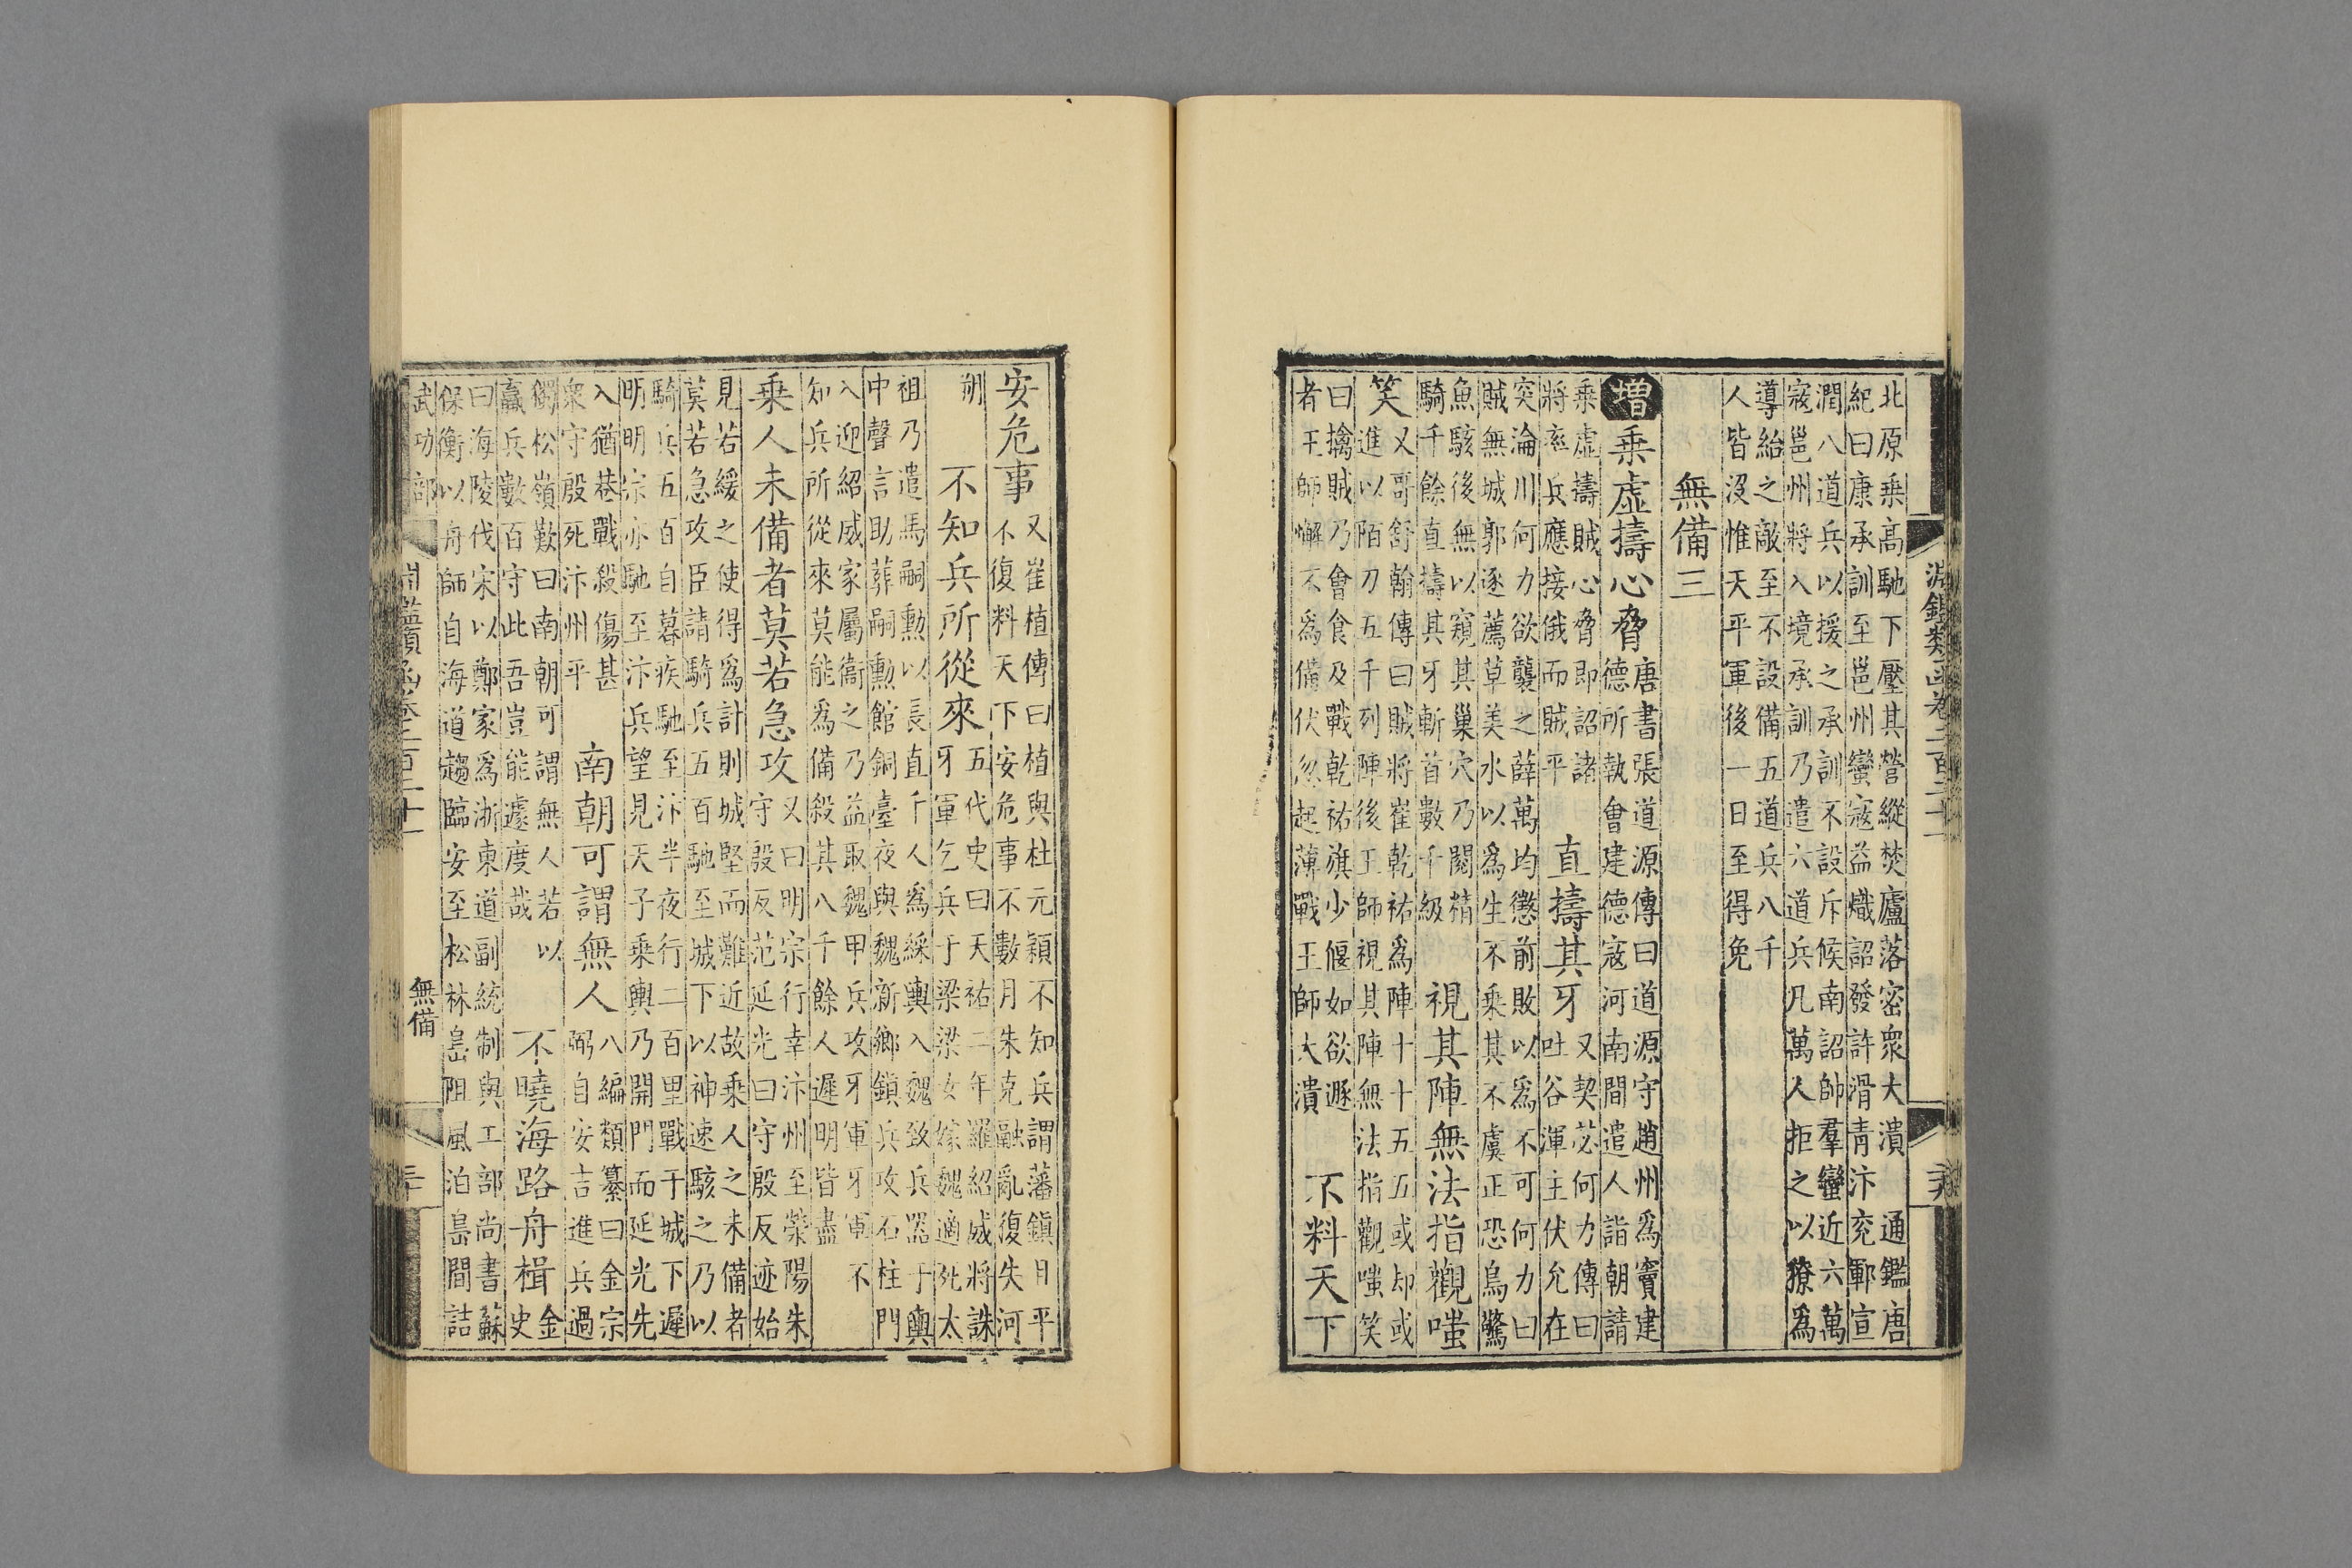 淵鑑類函卷二百二十一
北原乗高馳下壓其營縱焚廬落密衆大潰 通鑑唐
紀曰康承訓至邕州蠻寇益熾詔發許滑青汴兗鄆宣
潤八道兵以援之承訓不設斥候南詔帥羣蠻近六萬
寇邕州將入境承訓乃遣六道兵凡萬人拒之以獠爲
導紿之敵至不設備五道兵八千
人皆沒惟天平軍後一日至得免
無備三
增乗虛擣心脅
唐書張道源傳曰道源守趙州爲竇建
德所執會建德寇河南間遣人詣朝請
乗虛擣賊心脅即詔諸
將率兵應接俄而賊平
直擣其牙
又契苾何力傳曰
吐谷渾主伏允在
突淪川何力欲襲之薛萬均懲前敗以爲不可何力曰
賊無城郭逐薦草美水以爲生不乘其不虞正恐鳥驚
魚駭後無以窺其巢穴乃閱精
騎千餘直擣其牙斬首數千級
視其陣無法指觀嗤
笑
又哥舒翰傳曰賊將崔乾祐爲陣十十五五或却或
進以陌刀五千列陣後王師視其陣無法指觀嗤笑
曰擒賊乃會食及戰乾祐旗少偃如欲遯
者王師懈不爲備伏忽起薄戰王師大潰
不料天下
安危事
又崔植傳曰植與杜元頴不知兵謂藩鎮日平
不復料天下安危事不數月朱克融亂復失河
朔
不知兵所從來
五代史曰天祐二年羅紹威將誅
牙軍乞兵于梁梁女嫁魏適死太
祖乃遣馬嗣勳以長直千人爲綵輿入魏致兵器于輿
中聲言助葬嗣勳館銅臺夜與魏新鄉鎮兵攻石柱門
入迎紹威家屬衞之乃益取魏甲兵攻牙軍牙軍不
知兵所從來莫能爲備殺其八千餘人遲明皆盡
乗人未備者莫若急攻
又曰明宗行幸汴州至滎陽朱
守殷反范延光曰守殷反迹始
見若緩之使得爲計則城堅而難近故乗人之未備者
莫若急攻臣請騎兵五百馳至城下以神速駭之乃以
騎兵五百自暮疾馳至汴半夜行二百里戰于城下遲
明明宗亦馳至汴兵望見天子乗輿乃開門而延光先
入猶巷戰殺傷甚
衆守殷死汴州平
南朝可謂無人
八編類纂曰金宗
弼自安吉進兵過
獨松嶺歎曰南朝可謂無人若以
羸兵數百守此吾豈能遽度哉
不曉海路舟楫
金
史
曰海陵伐宋以鄭家爲浙東道副統制與工部尚書蘇
保衡以舟師自海道趨臨安至松林島阻風泊島間詰
武功部
淵鑑類函卷二百二十一
無備
三十